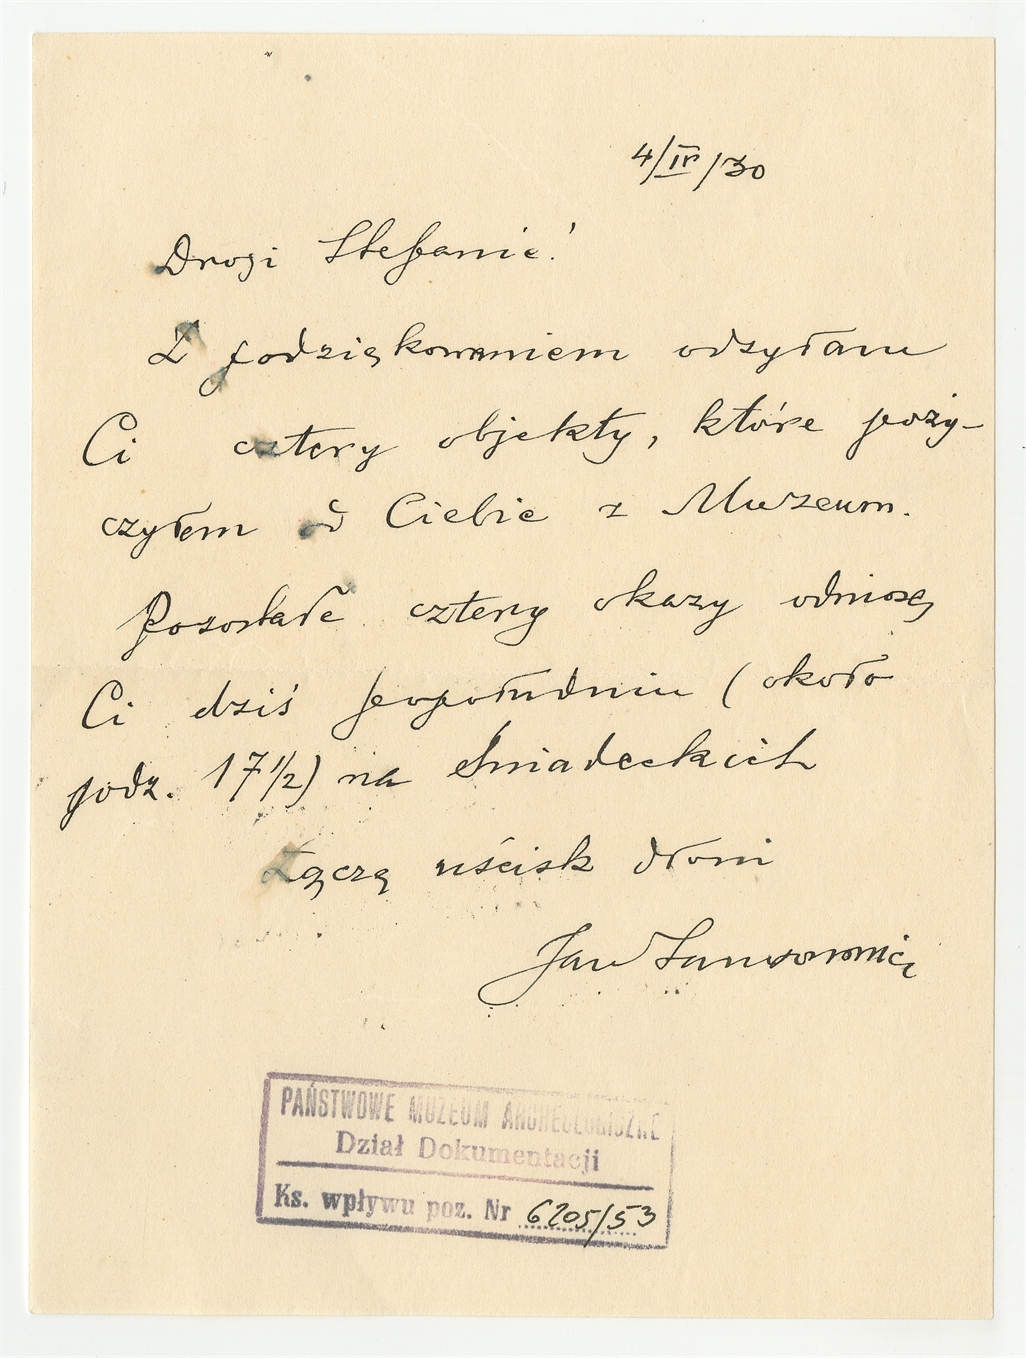 4/IV/30
Drogi Stefanie!
Z podziękowaniem odsyłam
Ci cztery objekty, które poży-
czyłem od Ciebie z Muzeum.
Pozostałe cztery okazy odniosę
Ci dziś popołudniu (około
godz. 17½) na Śniadeckich
Łączę uścisk dłoni
Jan Samsonowicz
PAŃSTWOWE MUZEUM ARCHEOLOGICZNE
Dział Dokumentacji
Ks. wpływu poz. Nr 6205/53